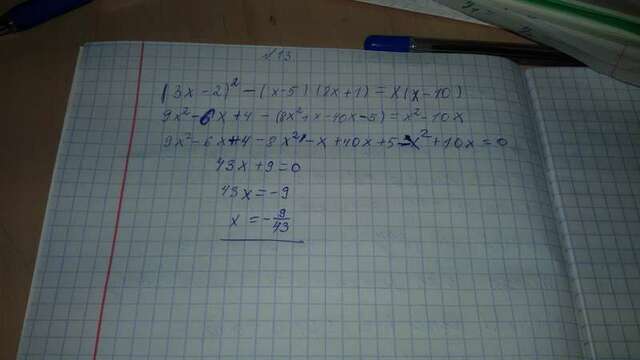 №13
(3x-2)² - (x-5)(8x+1) = x(x-10)
9x² - 6x + 4 - (8x² + x - 40x - 5) = x² - 10x
9x² - 6x + 4 - 8x² - x + 40x + 5 - x² + 10x = 0
43x + 9 = 0
43x = -9
x = - 9/43